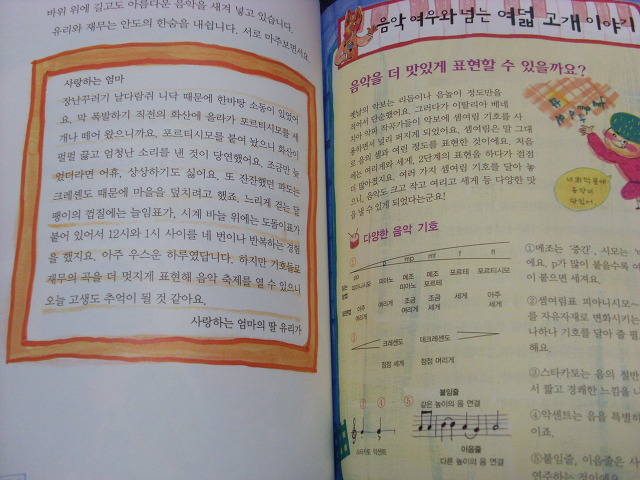 바위 위에 길고도 아름다운 음악을 새겨 넣고 있습니다.
유리와 재무는 안도의 한숨을 내쉽니다. 서로 마주보면서요.
사랑하는 엄마
장난꾸러기 날다람쥐 니닥 때문에 한바탕 소동이 있었어
요. 막 폭발하기 직전의 화산에 올라가 포르티시모를 세
개나 떼어 왔으니까요. 포르티시모를 붙여 놨으니 화산이
펄펄 끓고 엄청난 소리를 낸 것이 당연했어요. 조금만 늦
었더라면 어휴, 상상하기도 싫어요. 또 잔잔했던 파도는
크레센도 때문에 마을을 덮치려고 했죠. 느리게 걷는 달
팽이의 껍질에는 늘임표가, 시계 바늘 위에는 도돌이표가
붙어 있어서 12시와 1시 사이를 네 번이나 반복하는 경험
을 했지요. 아주 우스운 하루였답니다. 하지만 기호들로
재무의 곡을 더 멋지게 표현해 음악 축제를 열 수 있으니
오늘 고생도 추억이 될 것 같아요.
사랑하는 엄마의 딸 유리가
음악 여우와 넘는 여덟 고개 이야기
음악을 더 맛있게 표현할 수 있을까요?
옛날의 악보는 리듬이나 음높이 정도만을
적어서 단순했어요. 그러다가 이탈리아 베네
치아 악파 작곡가들이 악보에 셈여림 기호를 사
용하면서 널리 퍼지게 되었어요. 셈여림은 말 그대
로 음의 셈과 여린 정도를 표현한 것이에요. 처음
에는 여리게와 세게, 2단계의 표현을 하다가 점점
더 많아졌지요. 여러 가지 셈여림 기호를 달아 놓
으니, 음악도 크고 작고 여리고 세게 등 다양한 맛
을 낼 수 있게 되었다는군요!
다양한 음악 기호
① pp p mp mf f ff
피아노 메조 피아노 메조 포르테 포르테 포르티시모
아주 여리게 여리게 조금 여리게 조금 세게 세게 아주 세게
② 크레센도 데크레센도
점점 세게 점점 여리게
③ ④ ⑤
스타카토 악센트
붙임줄
같은 높이의 음 연결
이음줄
다른 높이의 음 연결
①메조는 '중간', 시모는
에요. p가 많이 붙을수록 여
이 붙으면 세져요.
②셈여림표 피아니시모~
를 자유자재로 변화시키는
나하나 기호를 달아 줄 필
해요.
③스타카토는 음의 절반
서 짧고 경쾌한 느낌을 나
④악센트는 음을 특별히
이죠.
⑤붙임줄, 이음줄은 사
연주하는 것이에요